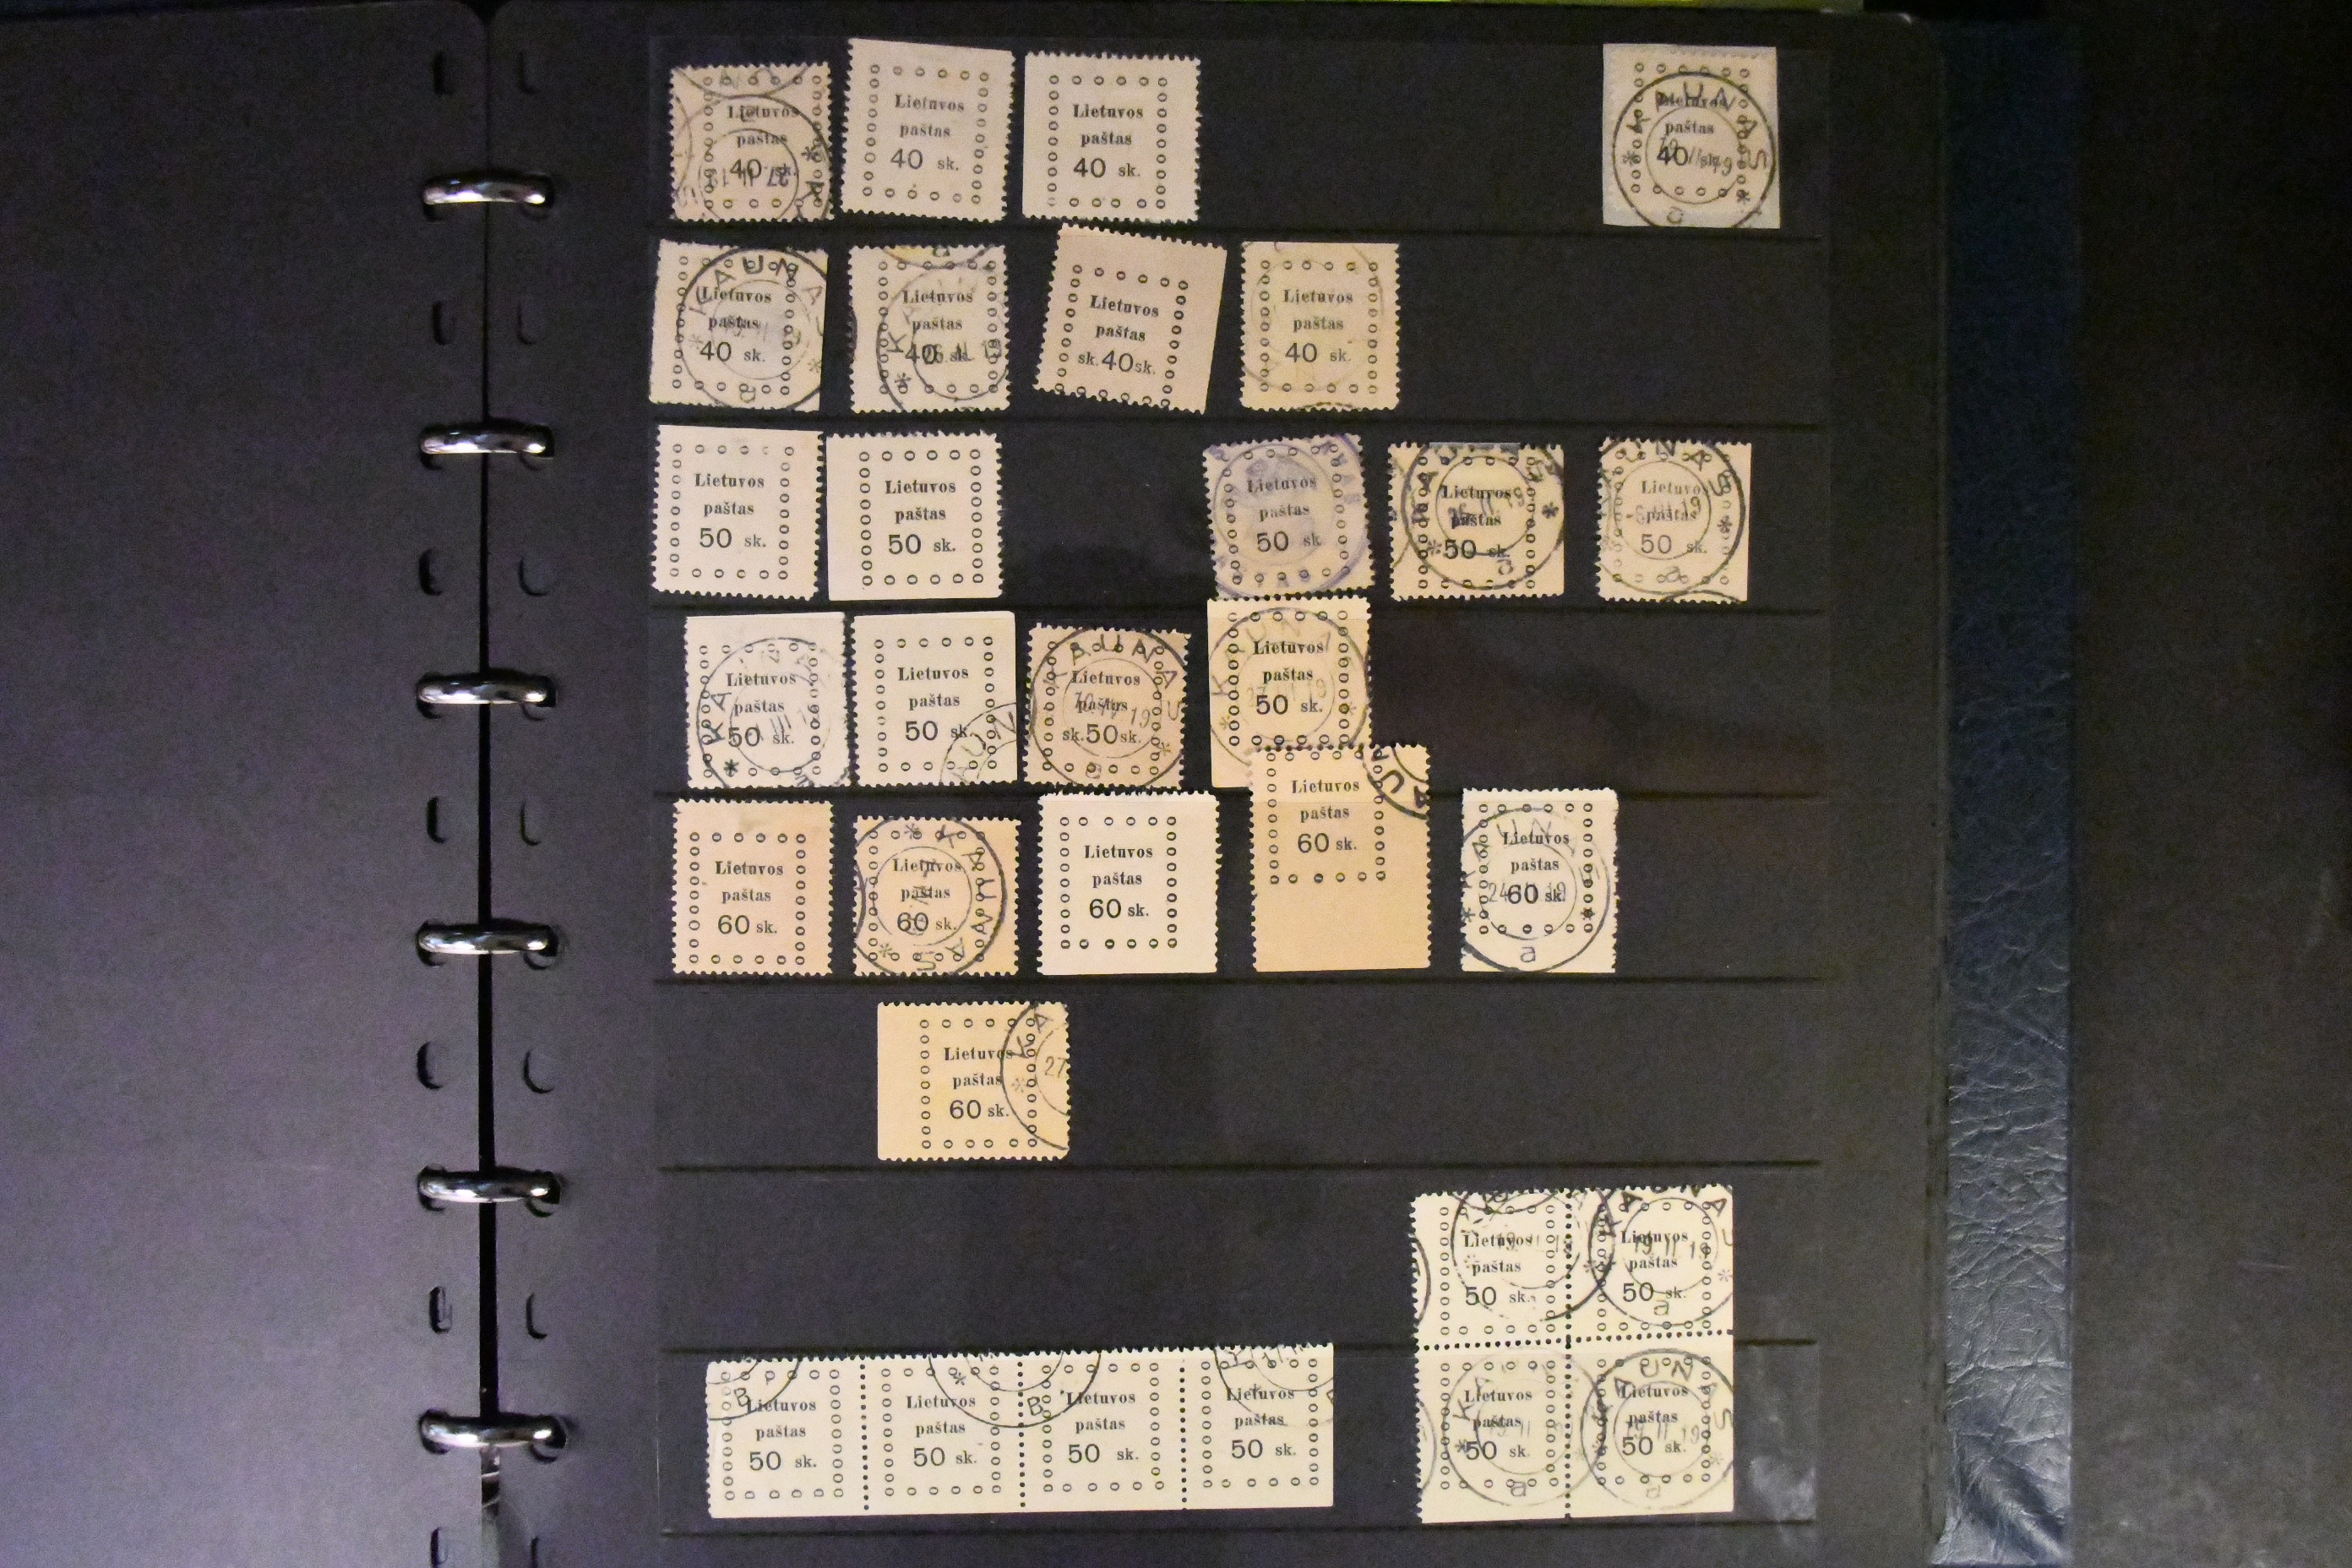 Lietuvos
paštas
40 sk.
Lietuvos
paštas
40 sk.
Lietuvos
paštas
40 sk.
KAUNAS
Lietuvos
paštas
40 sk.
a
KAUNA
Lietuvos
paštas
40 sk.
a
Lietuvos
paštas
40 sk.
Lietuvos
paštas
sk. 40 sk.
Lietuvos
paštas
40 sk.
Lietuvos
paštas
50 sk.
Lietuvos
paštas
50 sk.
Lietuvos
paštas
50 sk.
Lietuvos
paštas
50 sk.
a
Lietuvos
paštas
50 sk.
a
Lietuvos
paštas
50 sk.
Lietuvos
paštas
50 sk.
AUN
KAUNA
Lietuvos
paštas
sk. 50 sk.
a
KAUNA
Lietuvos
paštas
50 sk.
Lietuvos
paštas
60 sk.
KAUNAS
Lietuvos
paštas
60 sk.
Lietuvos
paštas
60 sk.
AU
Lietuvos
paštas
60 sk.
KAUN
Lietuvos
paštas
60 sk.
a
KA
27
Lietuvos
paštas
60 sk.
Lietuvos
paštas
50 sk.
KAUNA
19 II 19
Lietuvos
paštas
50 sk.
a
B
Lietuvos
paštas
50 sk.
Lietuvos
paštas
50 sk.
B
Lietuvos
paštas
50 sk.
Lietuvos
paštas
50 sk.
Lietuvos
paštas
50 sk.
a
KAUNAS
19 II 19
Lietuvos
paštas
50 sk.
a